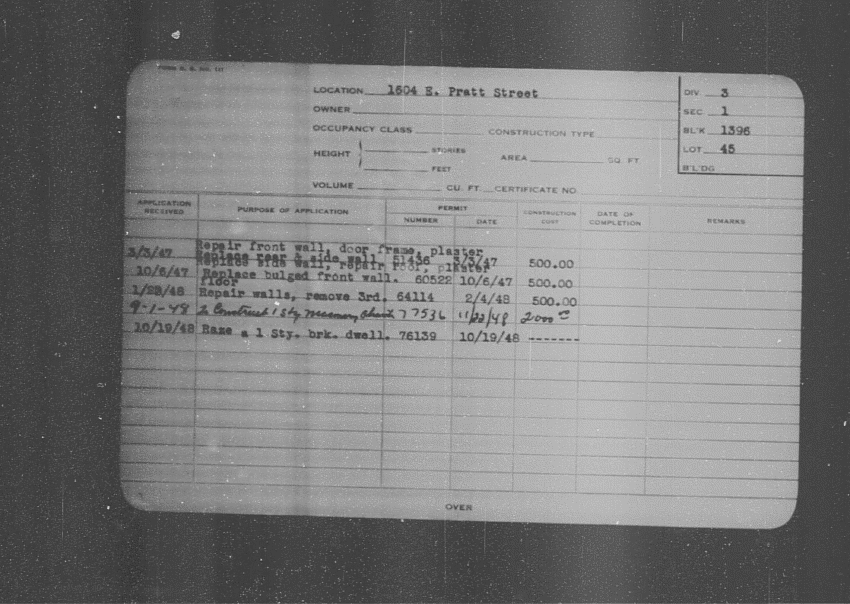 LOCATION 1604 E. Pratt Street
OWNER
OCCUPANCY CLASS CONSTRUCTION TYPE
HEIGHT STORIES AREA SQ. FT.
FEET
VOLUME CU. FT. CERTIFICATE NO.
DIV 3
SEC 1
BL'K 1396
LOT 45
B'L'DG
APPLICATION RECEIVED PURPOSE OF APPLICATION PERMIT NUMBER DATE CONSTRUCTION COST DATE OF COMPLETION REMARKS
Repair front wall, door frame, plaster
3/3/47 Replace rear & side wall 51436 3/3/47 500.00
Replace side wall, repair roof, plaster
10/6/47 Replace bulged front wall. 60522 10/6/47 500.00
floor
1/28/48 Repair walls, remove 3rd. 64114 2/4/48 500.00
9-1-48 To Construct 1 Sty masonry 77536 11/22/48 2000
10/19/48 Raze a 1 Sty. brk. dwell. 76139 10/19/48 -------
OVER